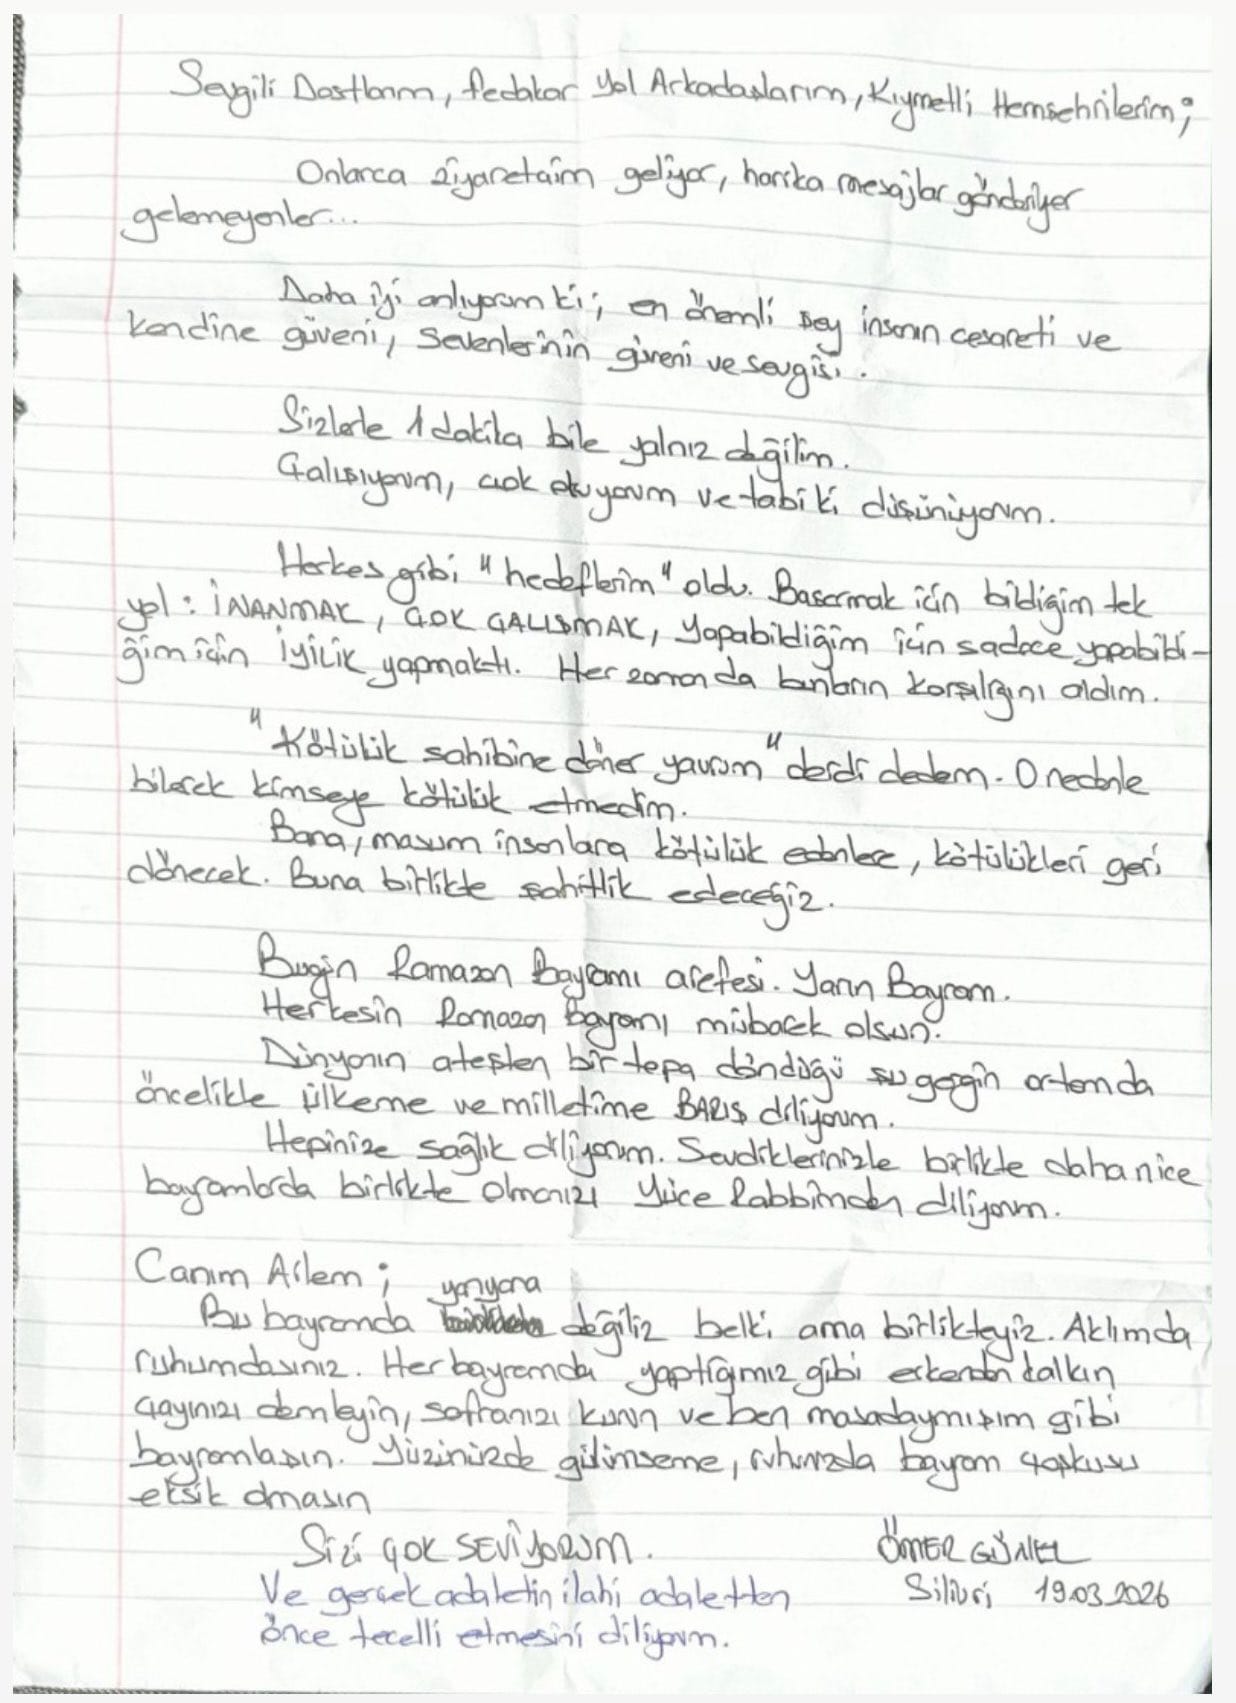 Sevgili Dostlarım, fedakar Yol Arkadaşlarım, Kıymetli Hemşehrilerim;
Onlarca ziyaretçim geliyor, harika mesajlar gönderiyor
gelemeyenler...
Daha iyi anlıyorum ki; en önemli şey insanın cesareti ve
kendine güveni, sevenlerinin güveni ve sevgisi.
Sizlerle 1 dakika bile yalnız değilim.
Çalışıyorum, çok okuyorum ve tabi ki düşünüyorum.
Herkes gibi "hedeflerim" oldu. Başarmak için bildiğim tek
yol: İNANMAK, ÇOK ÇALIŞMAK, yapabildiğim için sadece yapabildi-
ğim için İYİLİK yapmaktı. Her zaman da bunların karşılığını aldım.
"Kötülük sahibine döner yavrum" derdi dedem. O nedenle
bilerek kimseye kötülük etmedim.
Bana, masum insanlara kötülük edenlere, kötülükleri geri
dönecek. Buna birlikte şahitlik edeceğiz.
Bugün Ramazan Bayramı arefesi. Yarın Bayram.
Herkesin Ramazan Bayramı mübarek olsun.
Dünyanın ateşten bir topa döndüğü şu gergin ortamda
öncelikle ülkeme ve milletime BARIŞ diliyorum.
Hepinize sağlık diliyorum. Sevdiklerinizle birlikte daha nice
bayramlarda birlikte olmanızı Yüce Rabbimden diliyorum.
Canım Ailem;
Bu bayramda yanyana değiliz belki ama birlikteyiz. Aklımda
ruhumdasınız. Her bayramda yaptığımız gibi erkenden kalkın
çayınızı demleyin, sofranızı kurun ve ben masadaymışım gibi
bayramlaşın. Yüzünüzde gülümseme, ruhunuzda bayram coşkusu
eksik olmasın
Sizi ÇOK SEVİYORUM.
ÖMER GÜNEL
Ve gerçek adaletin ilahi adaletten
Silivri 19.03.2026
önce tecelli etmesini diliyorum.